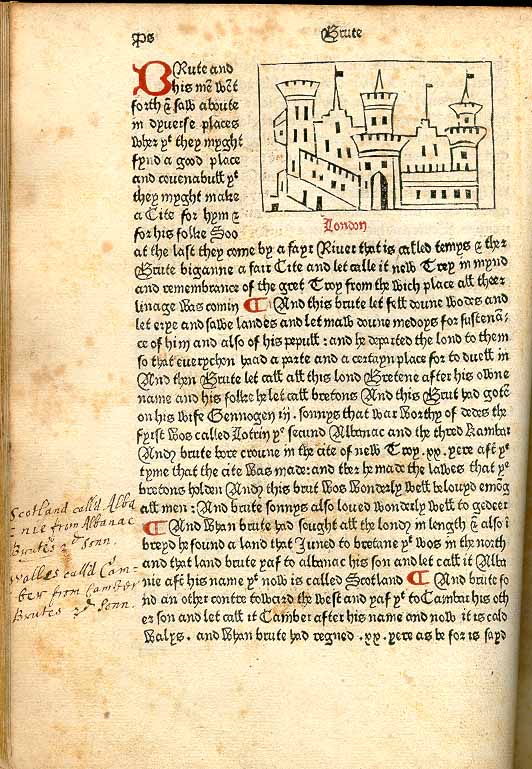 Brute
BRute and
his mē wēt
forth & saw aboute
in dyuerse places
wher yᵉ they myght
fynd a good place
and couenabull yᵗ
they myght make
a Cite for hym &
for his folke Soo
London
at the last they come by a fayr Riuer that is called temys & ther
Brute biganne a fair Cite and let calle it new Troy in mynd
and remembrance of the gret Troy from the wich place all theer
linage was comin ¶ And this brute let fell doune wodes and
let erye and sawe landes and let maw doune medoys for sustenā-
ce of him and also of his pepull: and he departed the lond to them
so that euerychon haad a parte and a certayn place for to duell in
And then Brute let call all this lond Bretene after his owne
name and his folke he let call bretons And this Brut had gotē
on his wife Gennogen iij. sonnys that war worthy of dedes the
fyrst wos called Lotrin yᵉ secund Albanac and the thred Kambar
Andy brute bore croune in the cite of new Troy .xx. yere aftʳ yᵉ
tyme that the cite was made: and ther he made the lawes that yᵉ
bretons holden Andy this brut was wonderly well belouyd emōg
all men: And brute sonnys also loued wonderly well to gedeer
¶ And whan brute had sought all the londy in length & also ī
breyd he found a land that Juned to bretane yᵗ wos in the north
and that land brute yaf to albanac his son and let call it Alba
nie aftʳ his name yᵗ now is called Scotland ¶ And brute fo
nd an other contre toward the west and yaf yᵗ to Cambar his oth
er son and let call it Camber after his name and now it is cald
Walys. and whan brute had regned .xx. yere as be for is sayd
Scotland call'd Alba
nie from Albanac
Brutes 2d sonn.
Walles call'd Cam-
ber from Camber
Brutes 3d sonn.